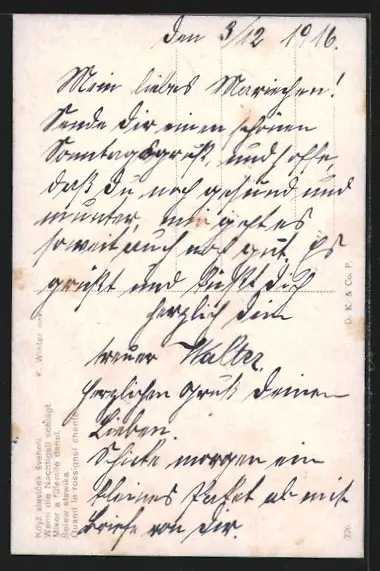 den 3/12 1916.
Mein liebes Mariechen!
Sende dir einen schönen
Sonntagsgruß, und hoffe,
daß du noch gesund und
munter, mir geht es
soweit auch noch gut. Es
grüßt und küßt dich
herzlich dein
treuer Walter
Herzlichen Gruß deinen
Lieben.
Schicke morgen ein
kleines Paket ab mit
Briefe von dir.
F. Winter
D. K. & Co. P.
Když slavíček šveholí.
Wenn die Nachtigall schlägt.
Mikor a fülemile dalol.
Śpiew słowika.
Quand le rossignol chante.